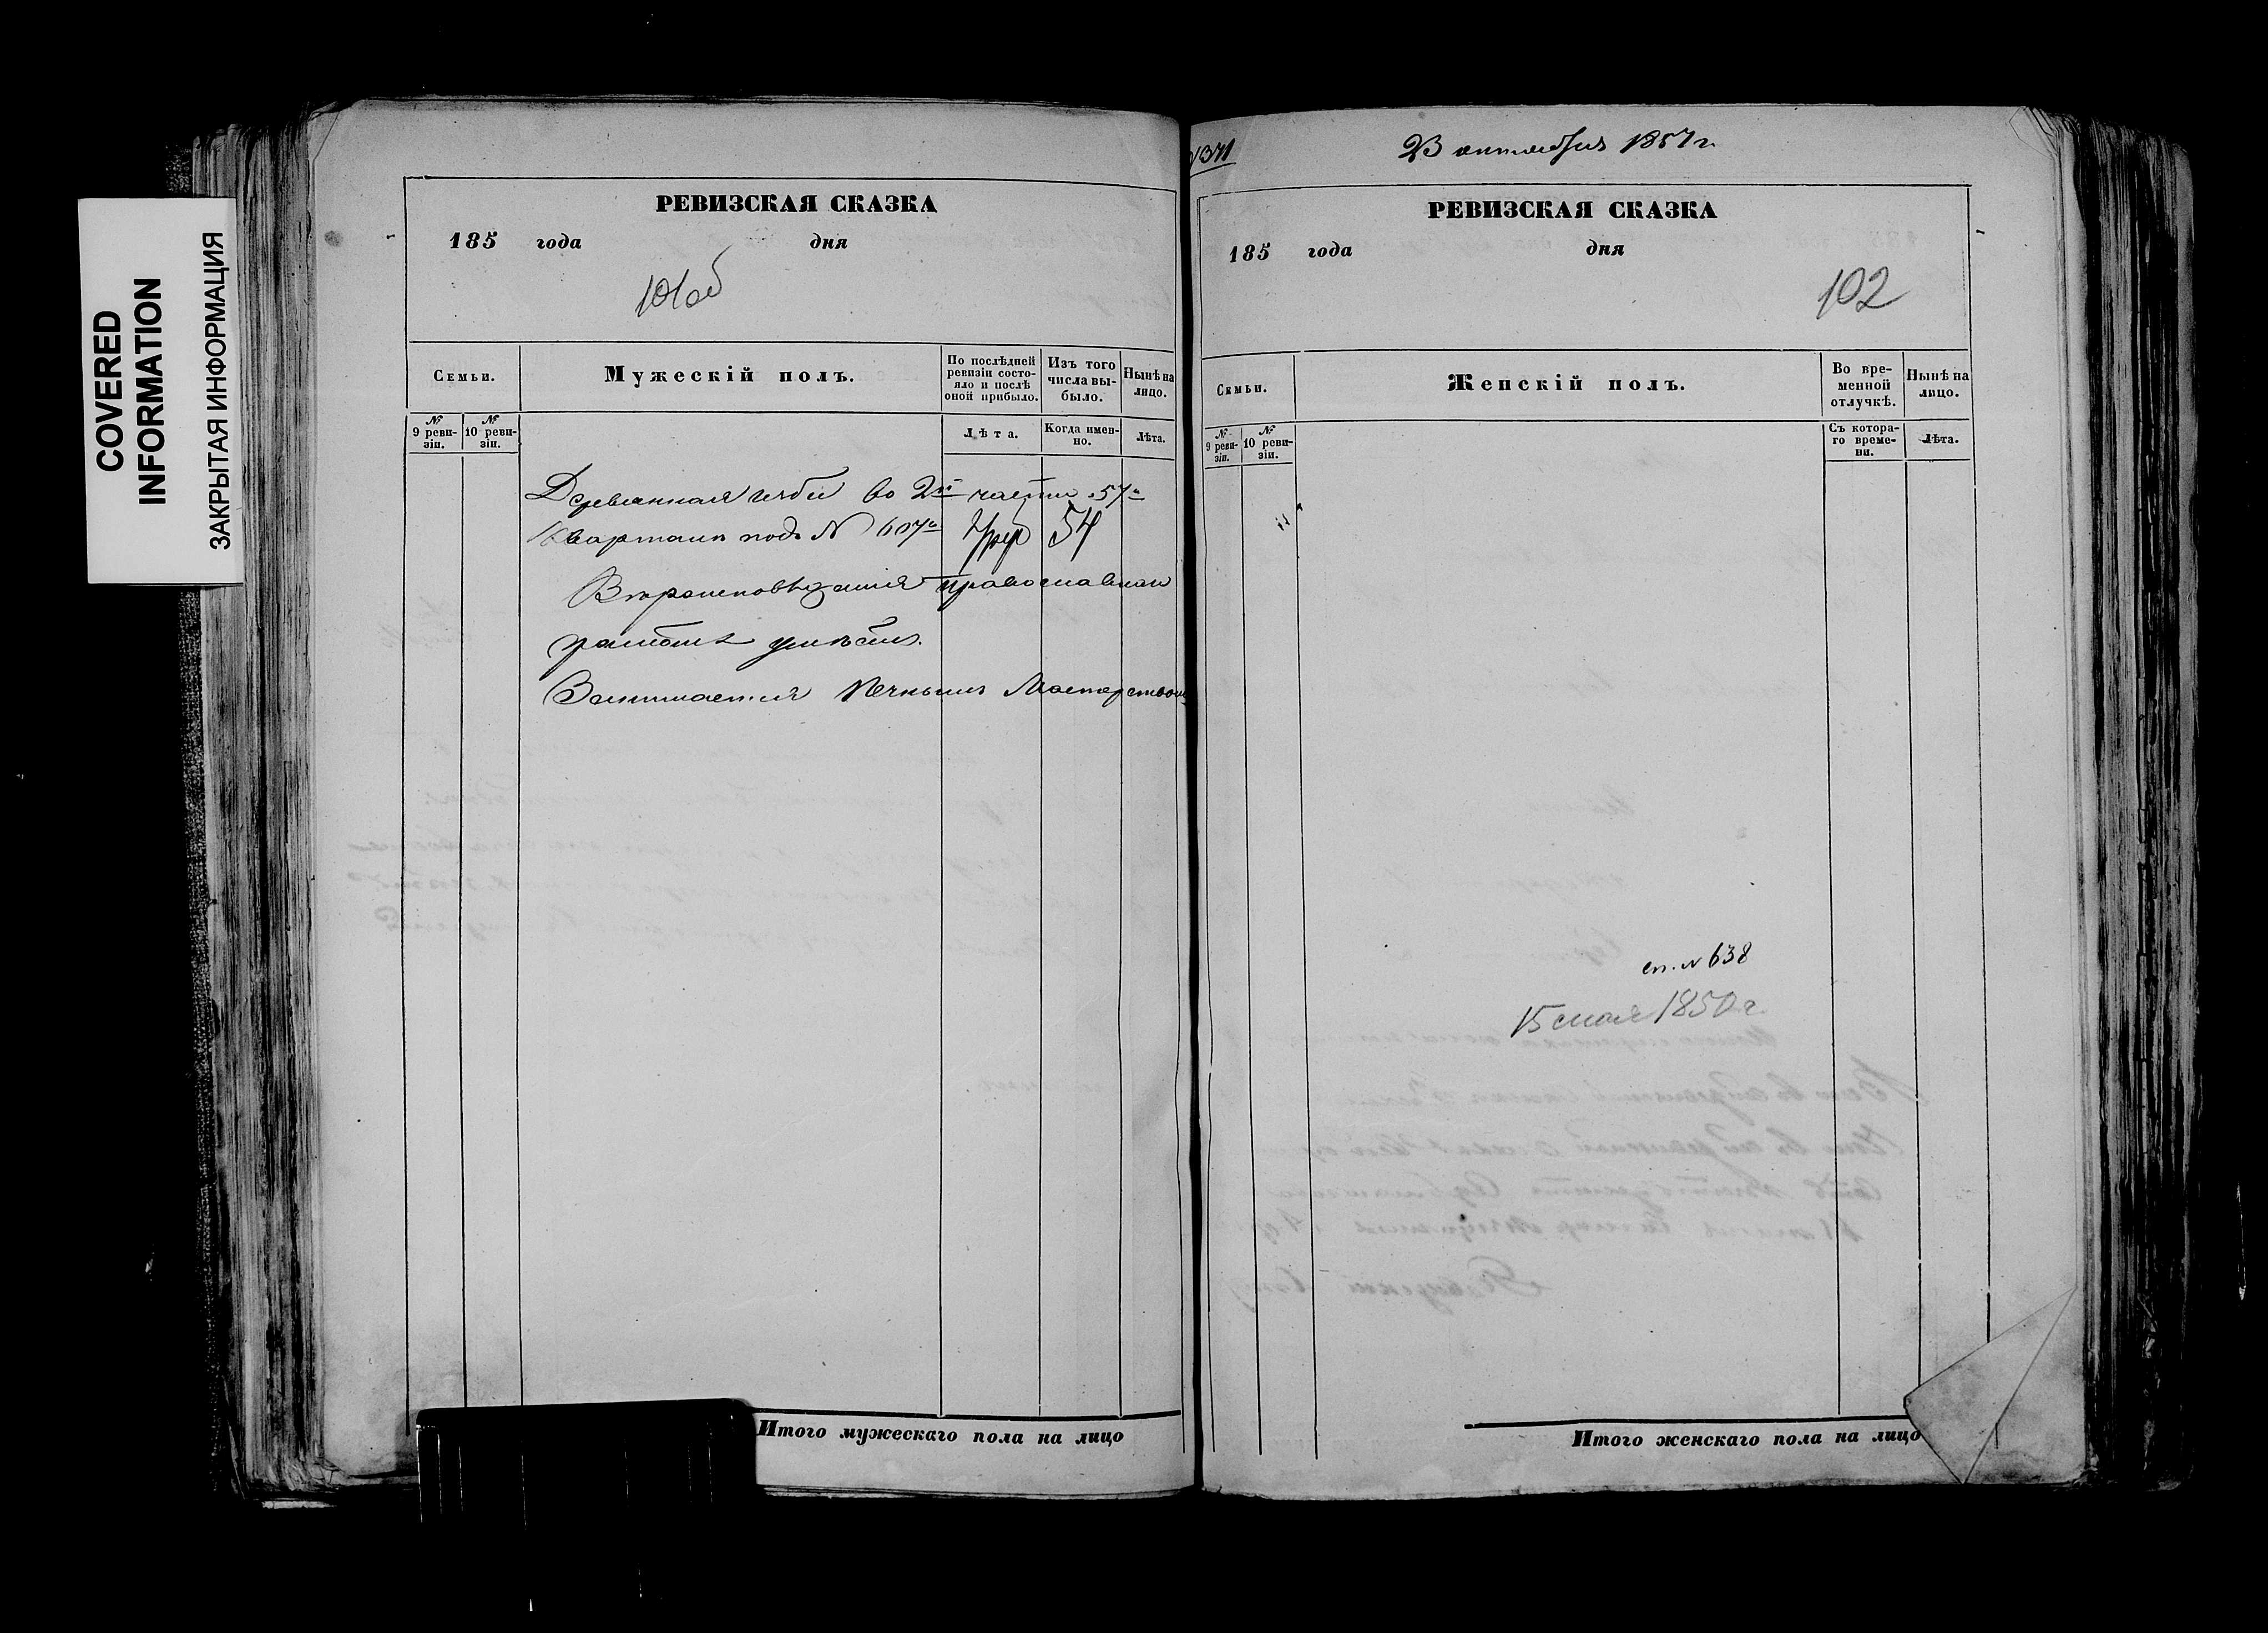 COVERED
INFORMATION
ЗАКРЫТАЯ ИНФОРМАЦИЯ
РЕВИЗСКАЯ СКАЗКА
185 года дня
101об
Семьи.
Мужескій полъ.
По послѣдней ревизіи состо-
яло и послѣ
оной прибыло.
Изъ того
числа вы-
было.
Нынѣ на
лицо.
№
9 реви-
зіи.
№
10 реви-
зіи.
Лѣта.
Когда имен-
но.
Лѣта.
Деревянная во 2й части 57о
Квартала подъ № 607о 54
Вѣроисповѣданія православнаго
грамотѣ умѣетъ.
Занимается печнымъ Мастерствомъ
Итого мужескаго пола на лицо
№371
23 октября 1857 г.
РЕВИЗСКАЯ СКАЗКА
185 года дня
102
Семьи.
Женскій полъ.
Во вре-
менной
отлучкѣ.
Нынѣ на
лицо.
№
9 реви-
зіи.
№
10 реви-
зіи.
Съ котора-
го време-
ни.
Лѣта.
сп. № 638
15 мая 1850 г.
Итого женскаго пола на лицо